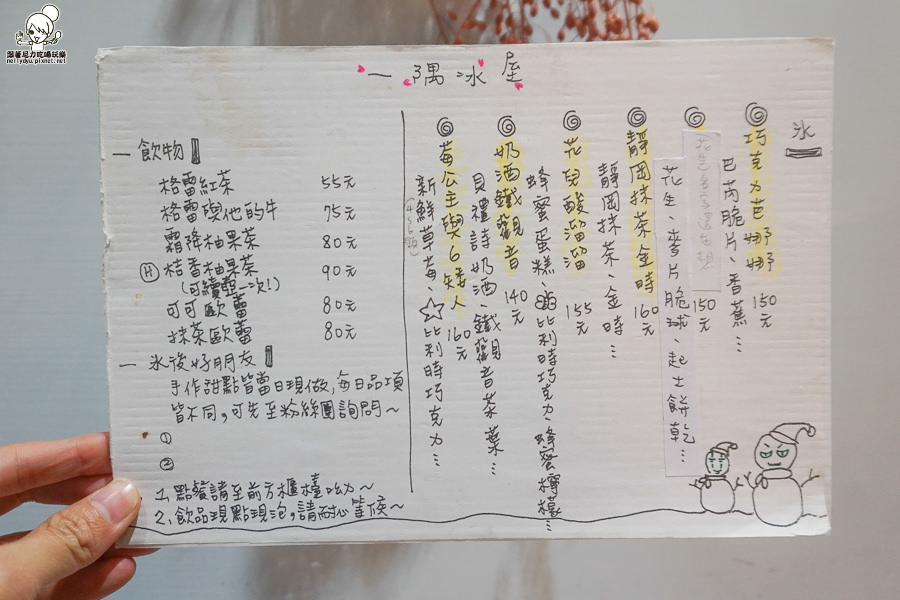 跟著尼力吃喝玩樂
nellydyu.pixnet.net
一隅冰屋
冰
巧克力芭娜娜 150元
巴芮脆片、香蕉…
花生 150元
花生、麥片脆球、起士餅乾…
靜岡抹茶金時 160元
靜岡抹茶、金時…
花兒酸溜溜 155元
蜂蜜蛋糕、比利時巧克力、蜂蜜檸檬…
奶酒鐵觀音 140元
貝禮詩奶酒、鐵觀音茶葉…
莓公主與6矮人 160元
新鮮草莓、☆比利時巧克力…
(4~6顆)
一 飲物
格雷紅茶 55元
格雷與他的牛 75元
霜降柚果茶 80元
(H) 桔香柚果茶 90元
(可續壺一次!)
可可歐蕾 80元
抹茶歐蕾 80元
一 冰後好朋友
手作甜點皆當日現做,每日品項
皆不同,可先至粉絲團詢問~
①
②
1、點餐請至前方櫃檯呦~
2、飲品現點現泡,請耐心等候~